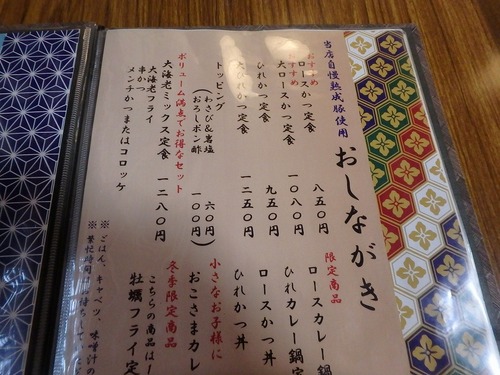 おしながき
当店自慢熟成豚使用
おすすめ
ロースかつ定食 八五〇円
おすすめ
大ロースかつ定食 一〇八〇円
ひれかつ定食 九五〇円
大ひれかつ定食 一二五〇円
トッピング
わさび&岩塩 六〇円
おろしポン酢 一〇〇円
ボリューム満点でお得なセット
大海老ミックス定食 一二八〇円
大海老フライ
串かつ
メンチかつまたはコロッケ
限定商品
ロースカレー鍋定
ひれカレー鍋
ロースかつ丼
ひれかつ丼
小さなお子様に
おこさまカレ
冬季限定商品
こちらの商品は
牡蠣フライ定
※ごはん、キャベツ、味噌汁の
※繁忙時間は